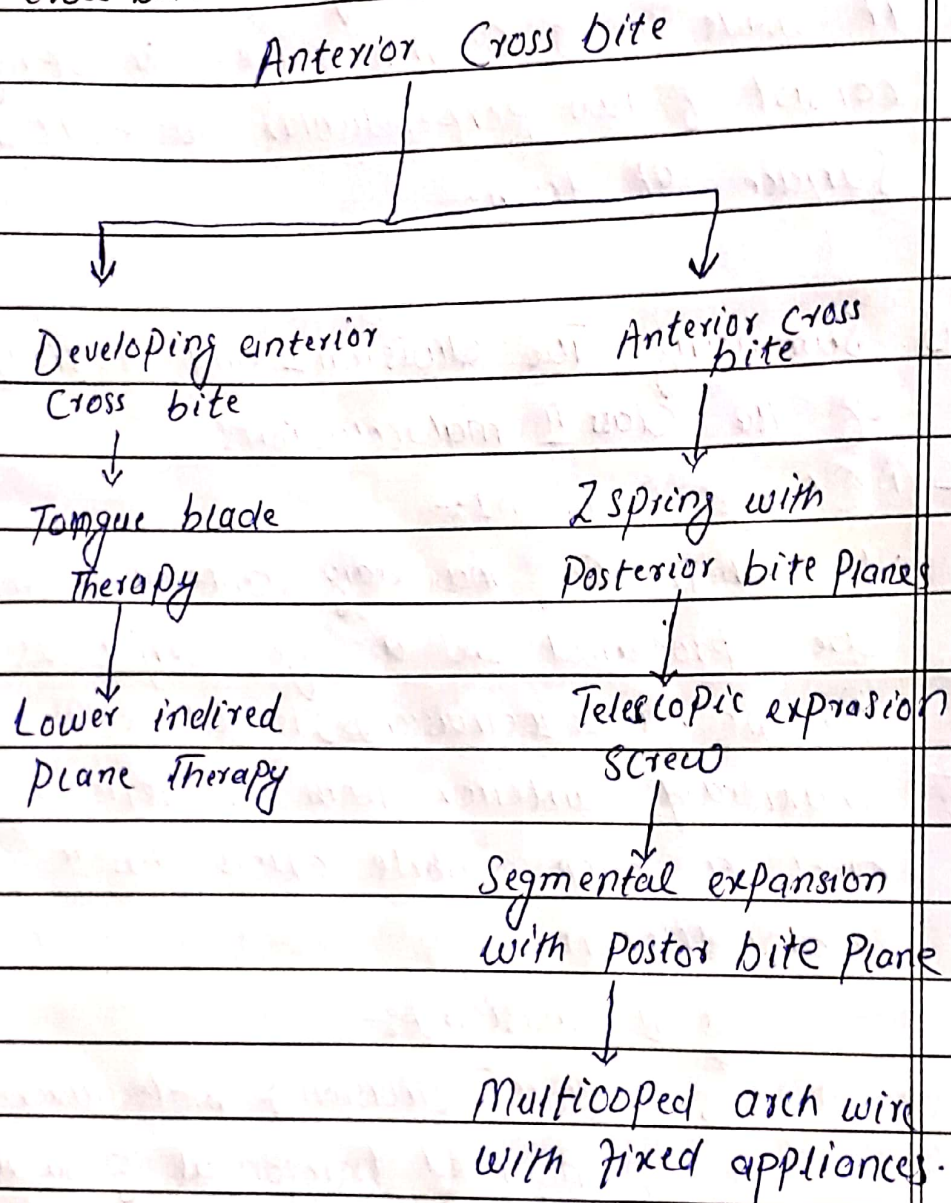 Anterior Cross bite
Developing anterior
Cross bite
Tongue blade
Therapy
Lower inclired
plane Therapy
Anterior Cross
bite
Z spring with
Posterior bite Planes
Telescopic exprasion
screw
Segmental expansion
with Postor bite Plane
Multiooped arch wire
with fixed appliances.